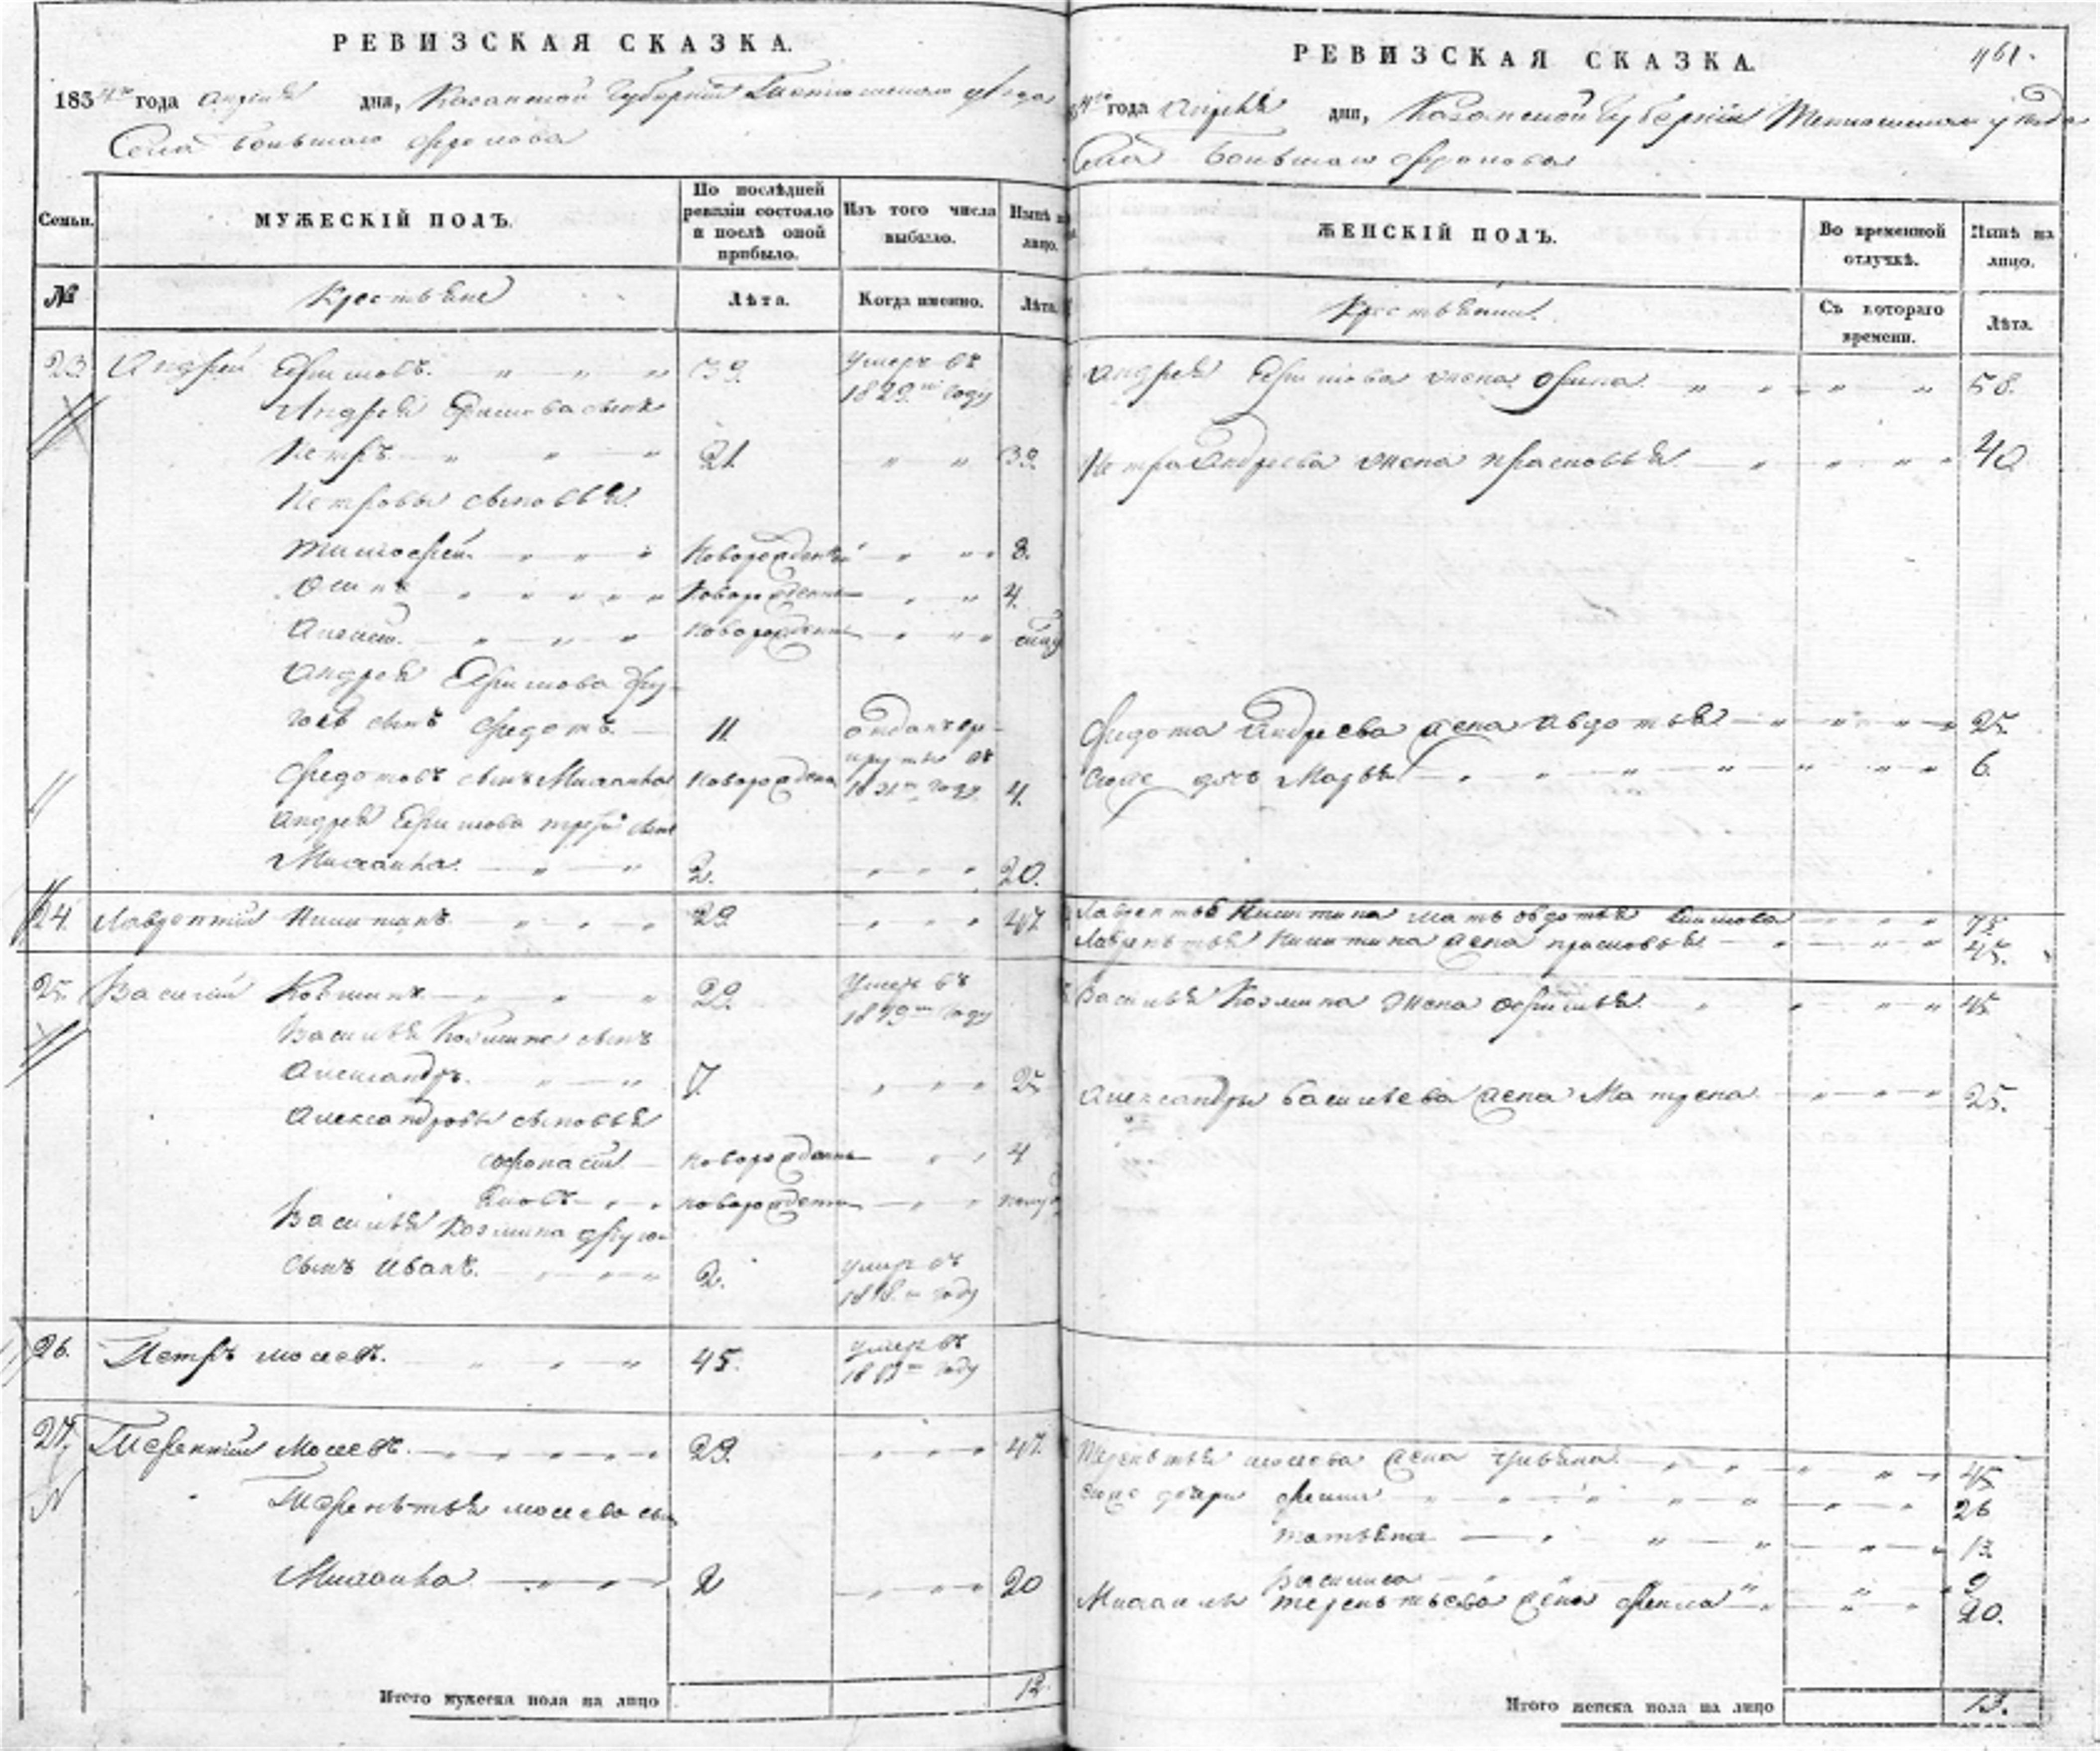 РЕВИЗСКАЯ СКАЗКА.
185 года апреля дня, Казанской Губернии уезда
Села Большаго Фролова
Семьи.
МУЖЕСКІЙ ПОЛЪ.
По послѣдней ревизіи состояло и послѣ оной прибыло.
Изъ того числа выбыло.
Нынѣ на лицо.
№
Крестьяне
Лѣта.
Когда именно.
Лѣта.
23. Андрей Ефимовъ. 39 Умеръ въ
1829 году
Андрея Ефимова сынъ
Петръ 21. 39.
Петровы сыновья
Тимофей Новорожденный 8.
Осипъ Новорожденный 4.
Новорожденный
Андрея Ефимова дру-
гой сынъ Федотъ 11 отданъ въ ре-
круты въ
Федотовъ сынъ Михаила Новорожден году 4.
Андрея Ефимова третій сынъ
Михаила. 2. 20.
24. Лаврентий Никитинъ. 29. 47.
25. Василий Козминъ 29. Умеръ въ
году
Василья Козмина сынъ
Александръ. 7. 25
Александровы сыновья
Новорожденный 4
новорожденный
Василья Козмина другой
сынъ Иванъ. 2. умеръ въ
году
26. Петръ Мосеевъ. 45. умеръ въ
году
27. Терентий Мосеевъ. 29. 47.
Терентья Мосеева сын
Михаила 2 20
Итого мужеска пола на лицо 12
РЕВИЗСКАЯ СКАЗКА.
961.
года Апреля дня, Казанской Губернии уезда
Села Большаго Фролова
ЖЕНСКІЙ ПОЛЪ.
Во временной отлучкѣ.
Нынѣ на лицо.
Съ котораго времени.
Лѣта.
Андрея Ефимова жена 58.
Петра Андреева жена Прасковья 40
Федота Андреева жена Авдотья 25.
дочь Марья 6.
Лаврентья Никитина мать Авдотья 75.
Лаврентья Никитина жена Прасковья 45.
Василья Козмина жена 45
Александры Васильева жена Матрена 25.
Терентья Мосеева жена 45
дочери 26
Татьяна 13.
Василиса 9
Михаилы Терентьева жена Фекла 20.
Итого женска пола на лицо 13.